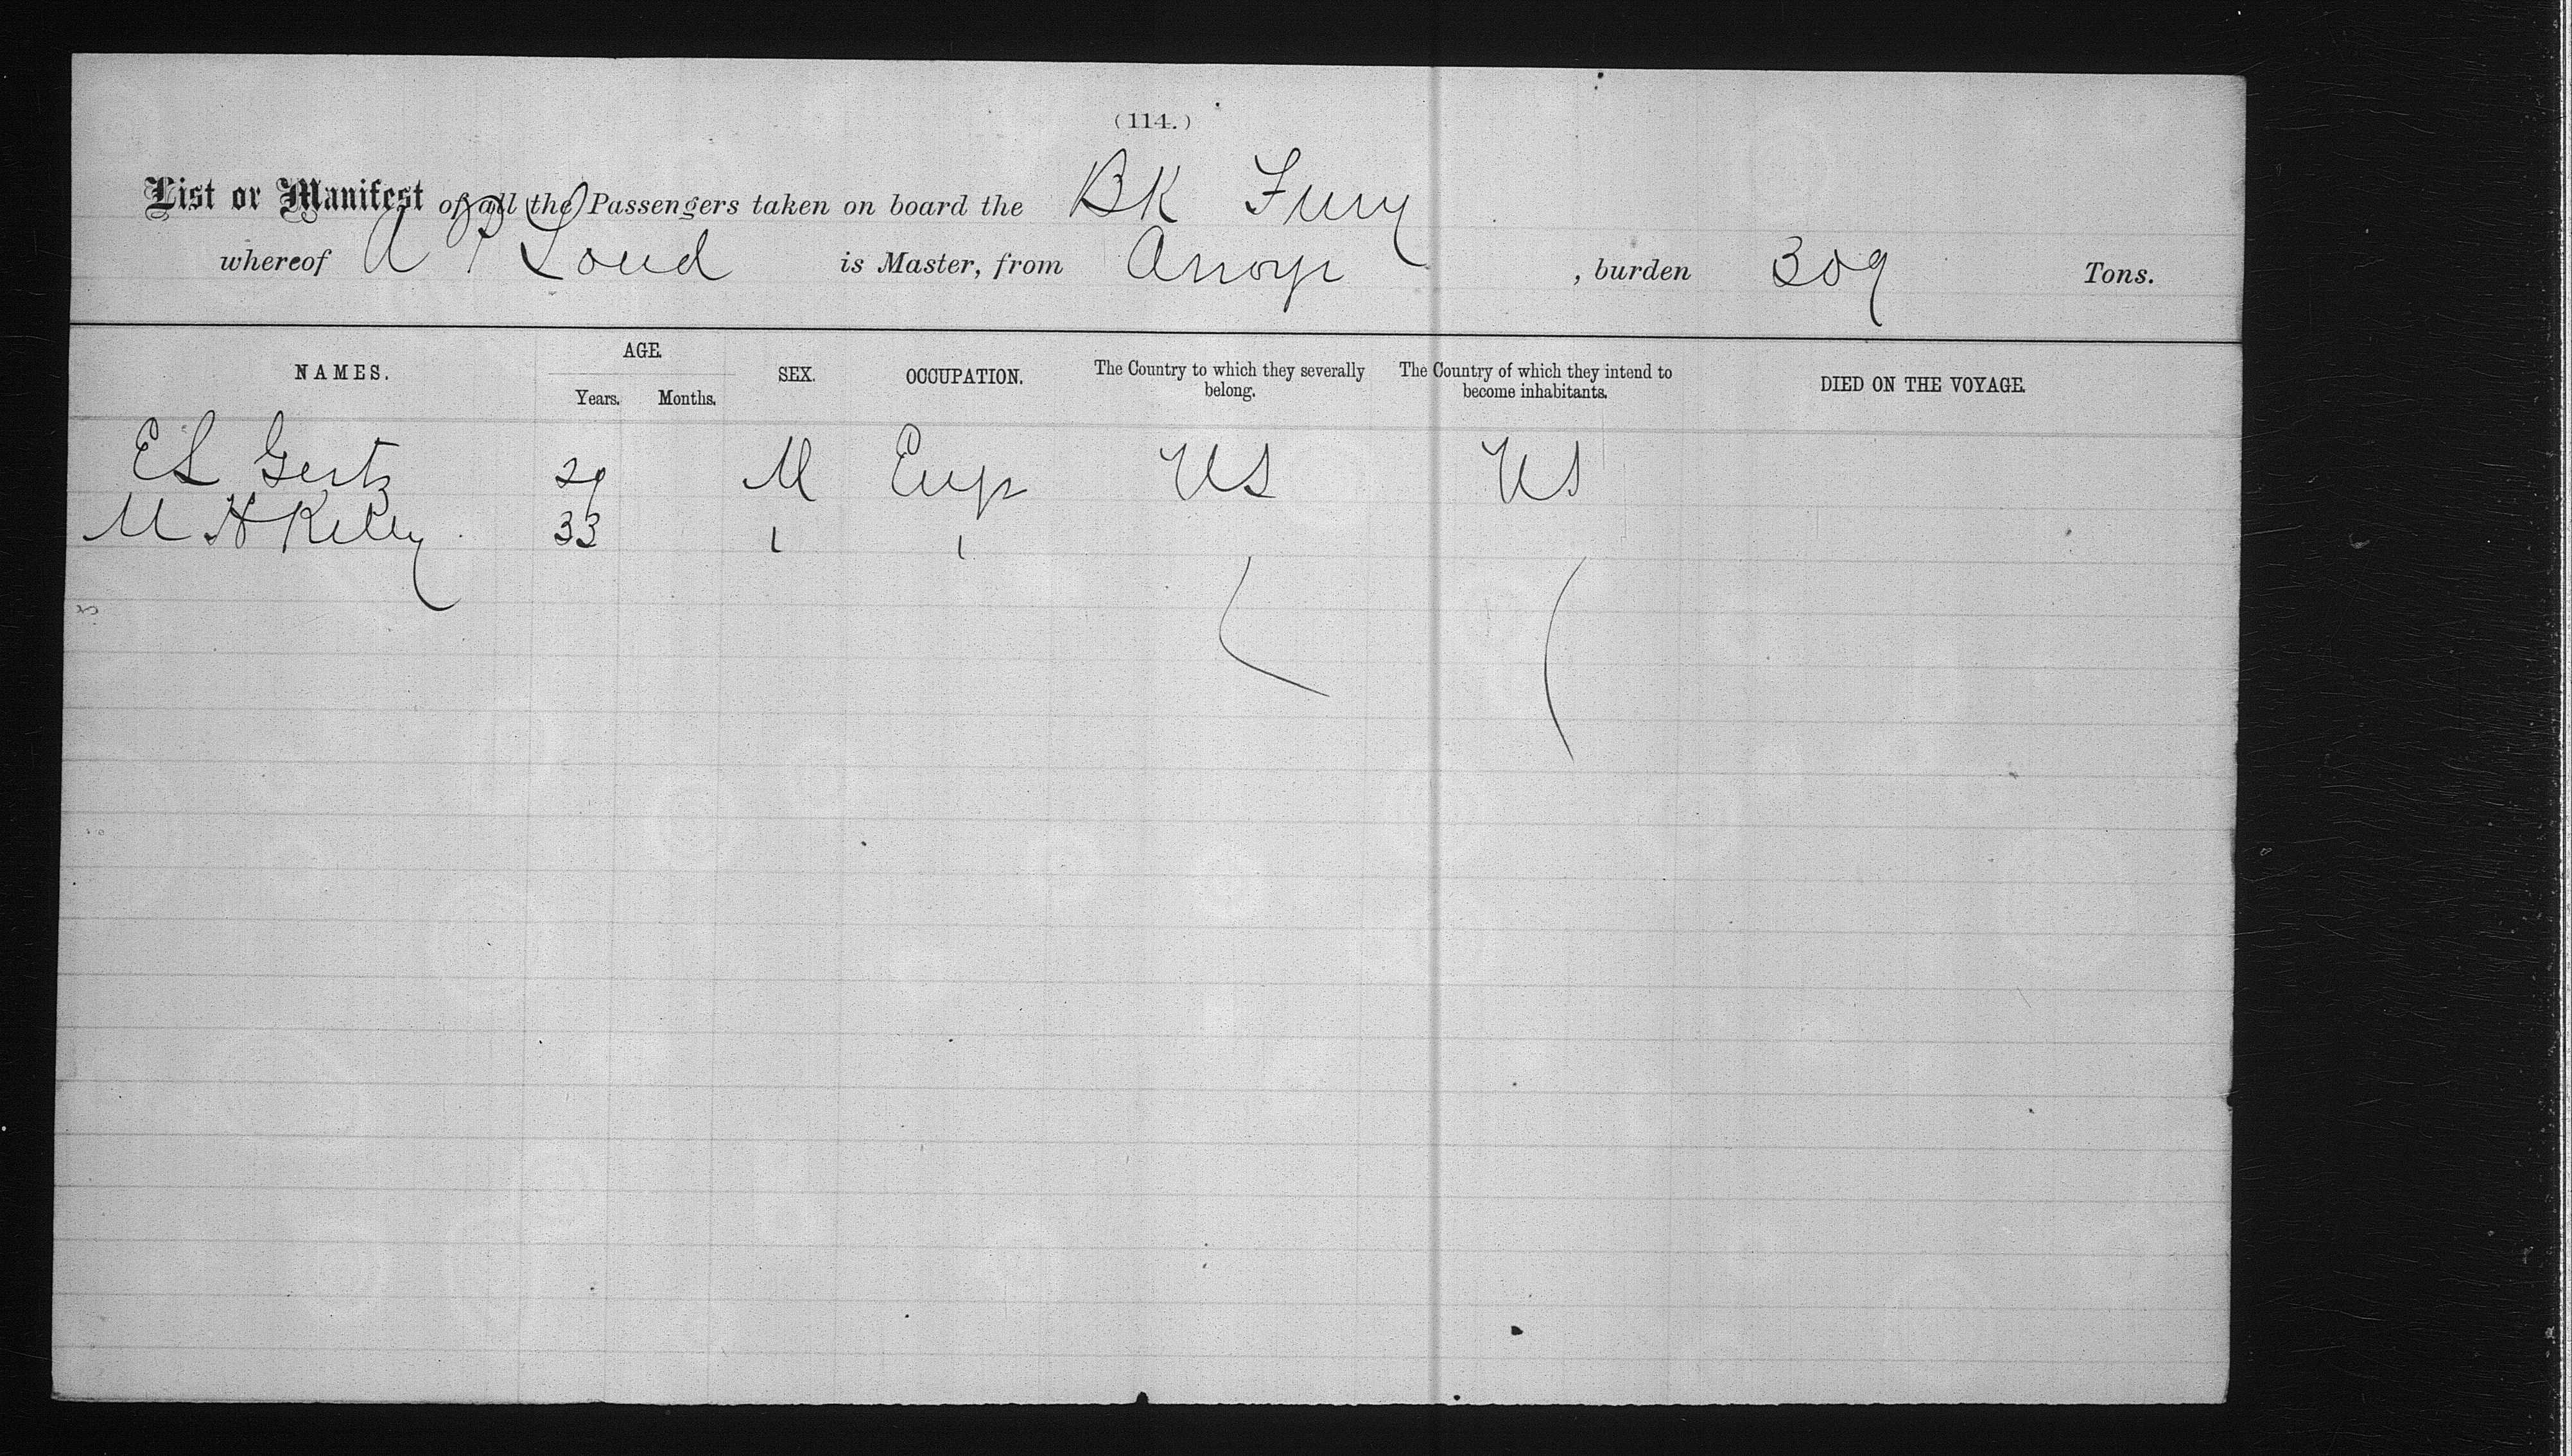 (114.)
List or Manifest of all the Passengers taken on board the BK Fury
whereof A P Loud is Master, from Arroyo, burden 309 Tons.
NAMES. AGE. SEX. OCCUPATION. The Country to which they severally belong. The Country of which they intend to become inhabitants. DIED ON THE VOYAGE.
Years. Months.
E L Gertz 29 M Eng US US
M H Kelly 33